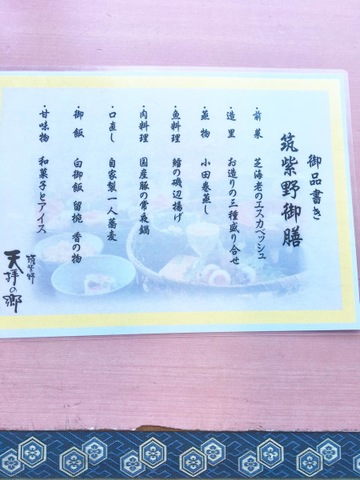 御品書き
筑紫野御膳
・前菜 芝海老のエスカベッシュ
・造里 お造りの三種盛り合せ
・蒸物 小田巻蒸し
・魚料理 鱈の磯辺揚げ
・肉料理 国産豚の常夜鍋
・口直し 自家製一人蕎麦
・御飯 白御飯 留椀 香の物
・甘味物 和菓子とアイス
筑紫野
天拝の郷